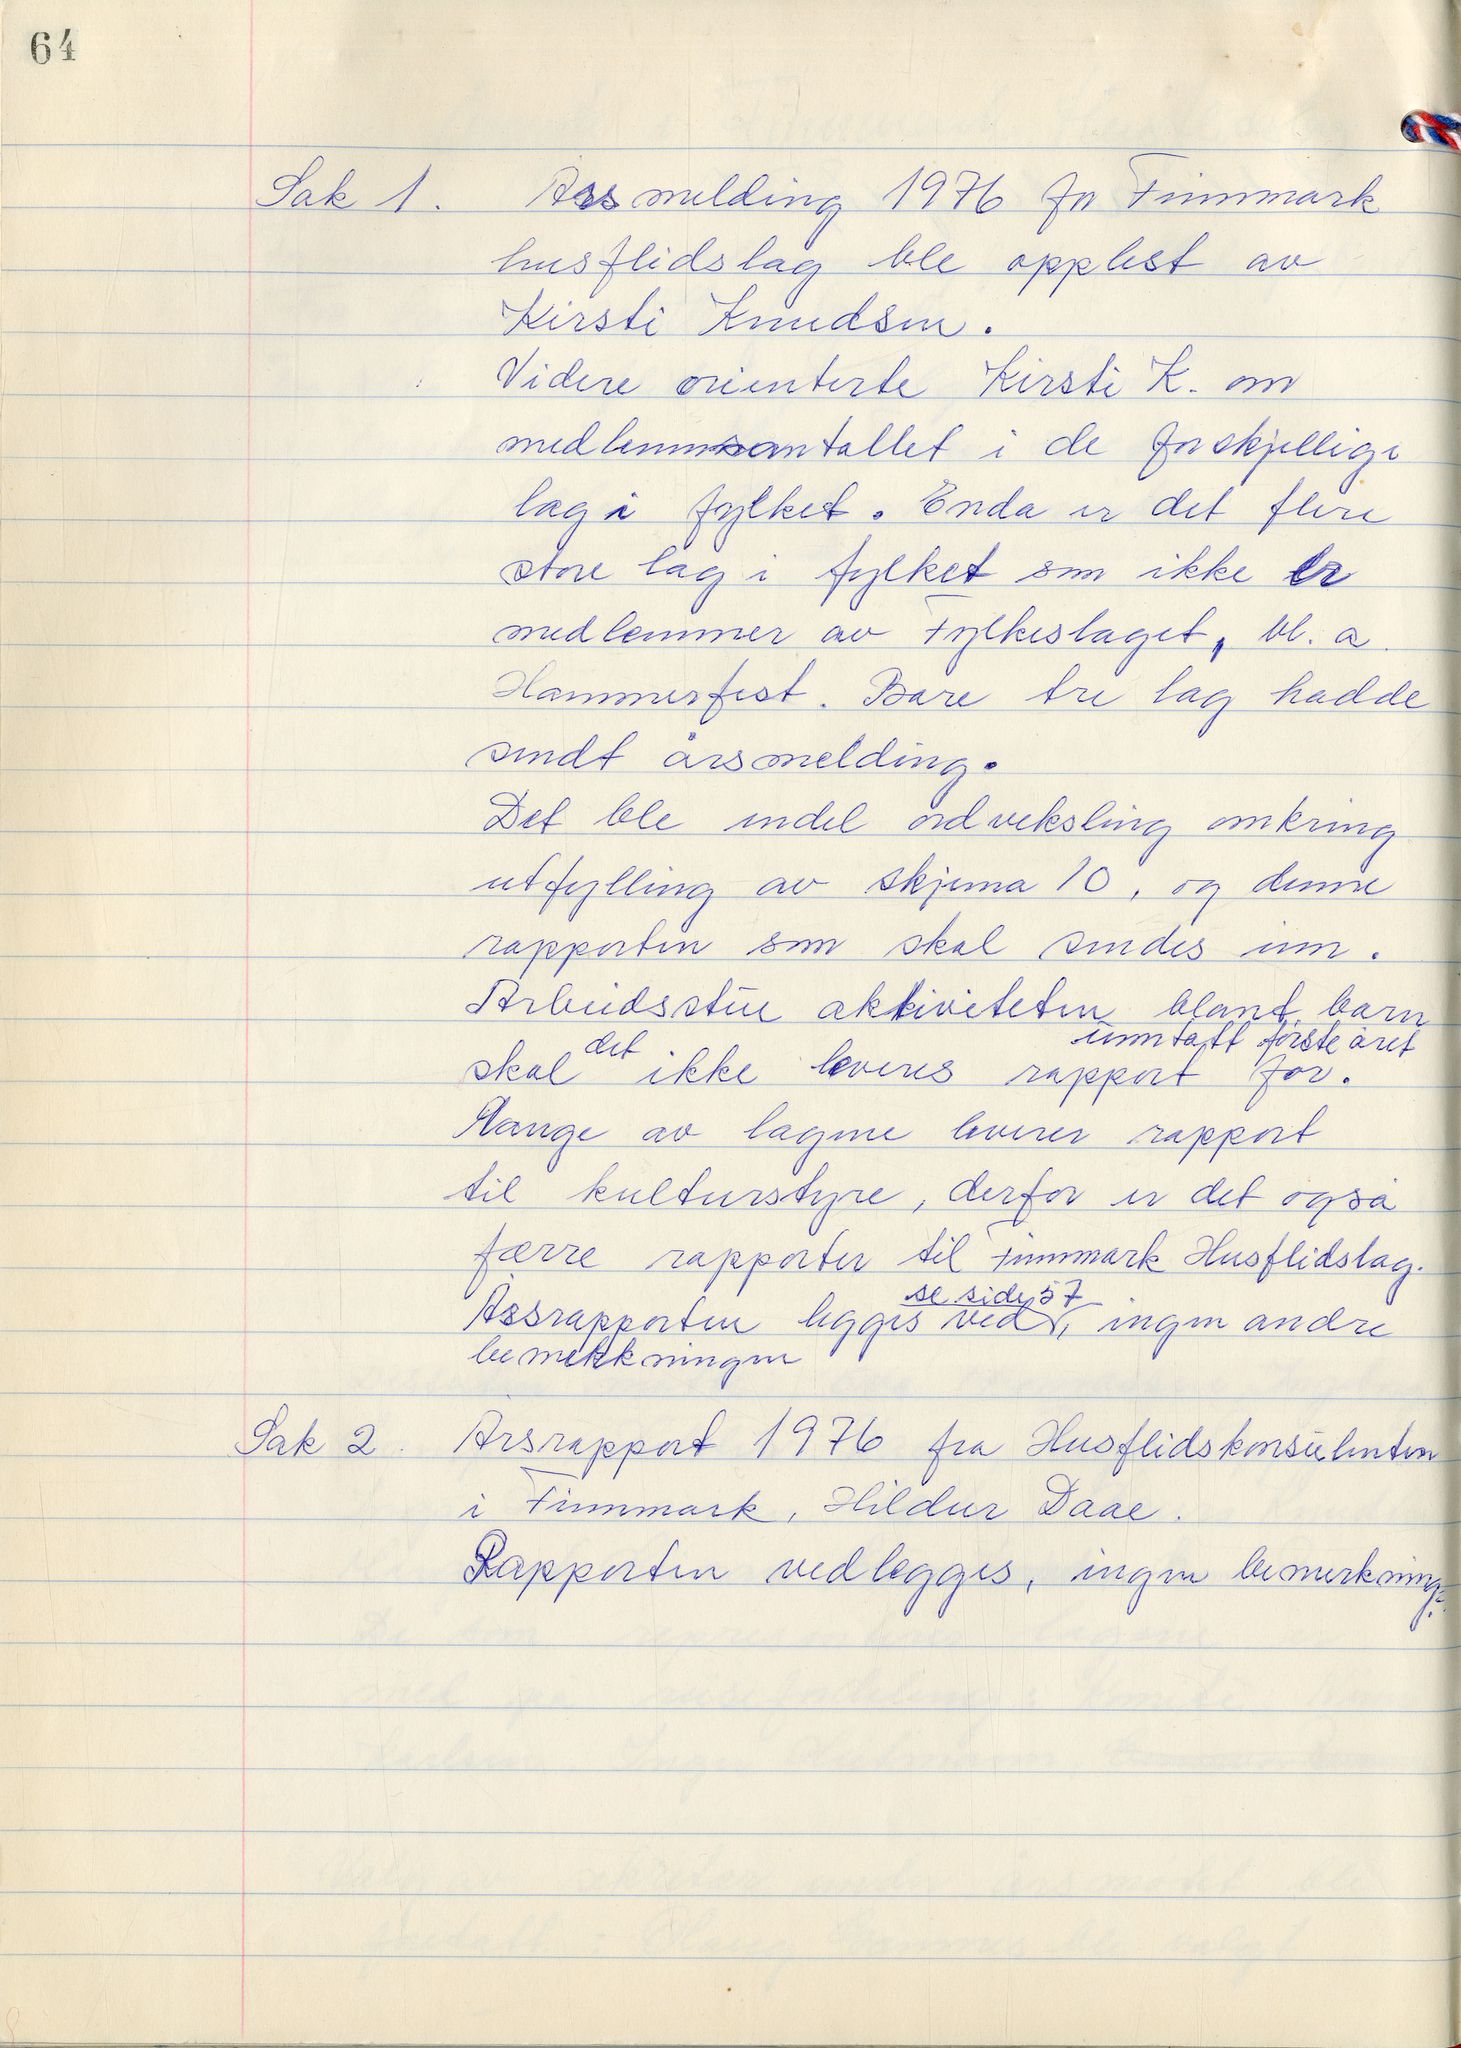 64
Sak 1. Årsmelding 1976 for Finnmark
husflidslag ble opplest av
Kirsti Knudsen.
Videre orienterte Kirsti K. om
medlemsantallet i de forskjellige
lag i fylket. Enda er det flere
store lag i fylket som ikke er
medlemmer av Fylkeslaget, bl. a.
Hammerfest. Bare tre lag hadde
sendt årsmelding.
Det ble endel ordveksling omkring
utfylling av skjema 10, og denne
rapporten som skal sendes inn.
Arbeidsstue aktiviteten blant barn
unntatt første året
skal det ikke leveres rapport for.
Mange av lagene leverer rapport
til kulturstyre, derfor er det også
færre rapporter til Finnmark Husflidslag.
se side 57
Årsrapporten legges ved, ingen andre
bemerkningen
Sak 2. Årsrapport 1976 fra Husflidskonsulenten
i Finnmark, Hildur Daae.
Rapporten vedlegges, ingen bemerkning.